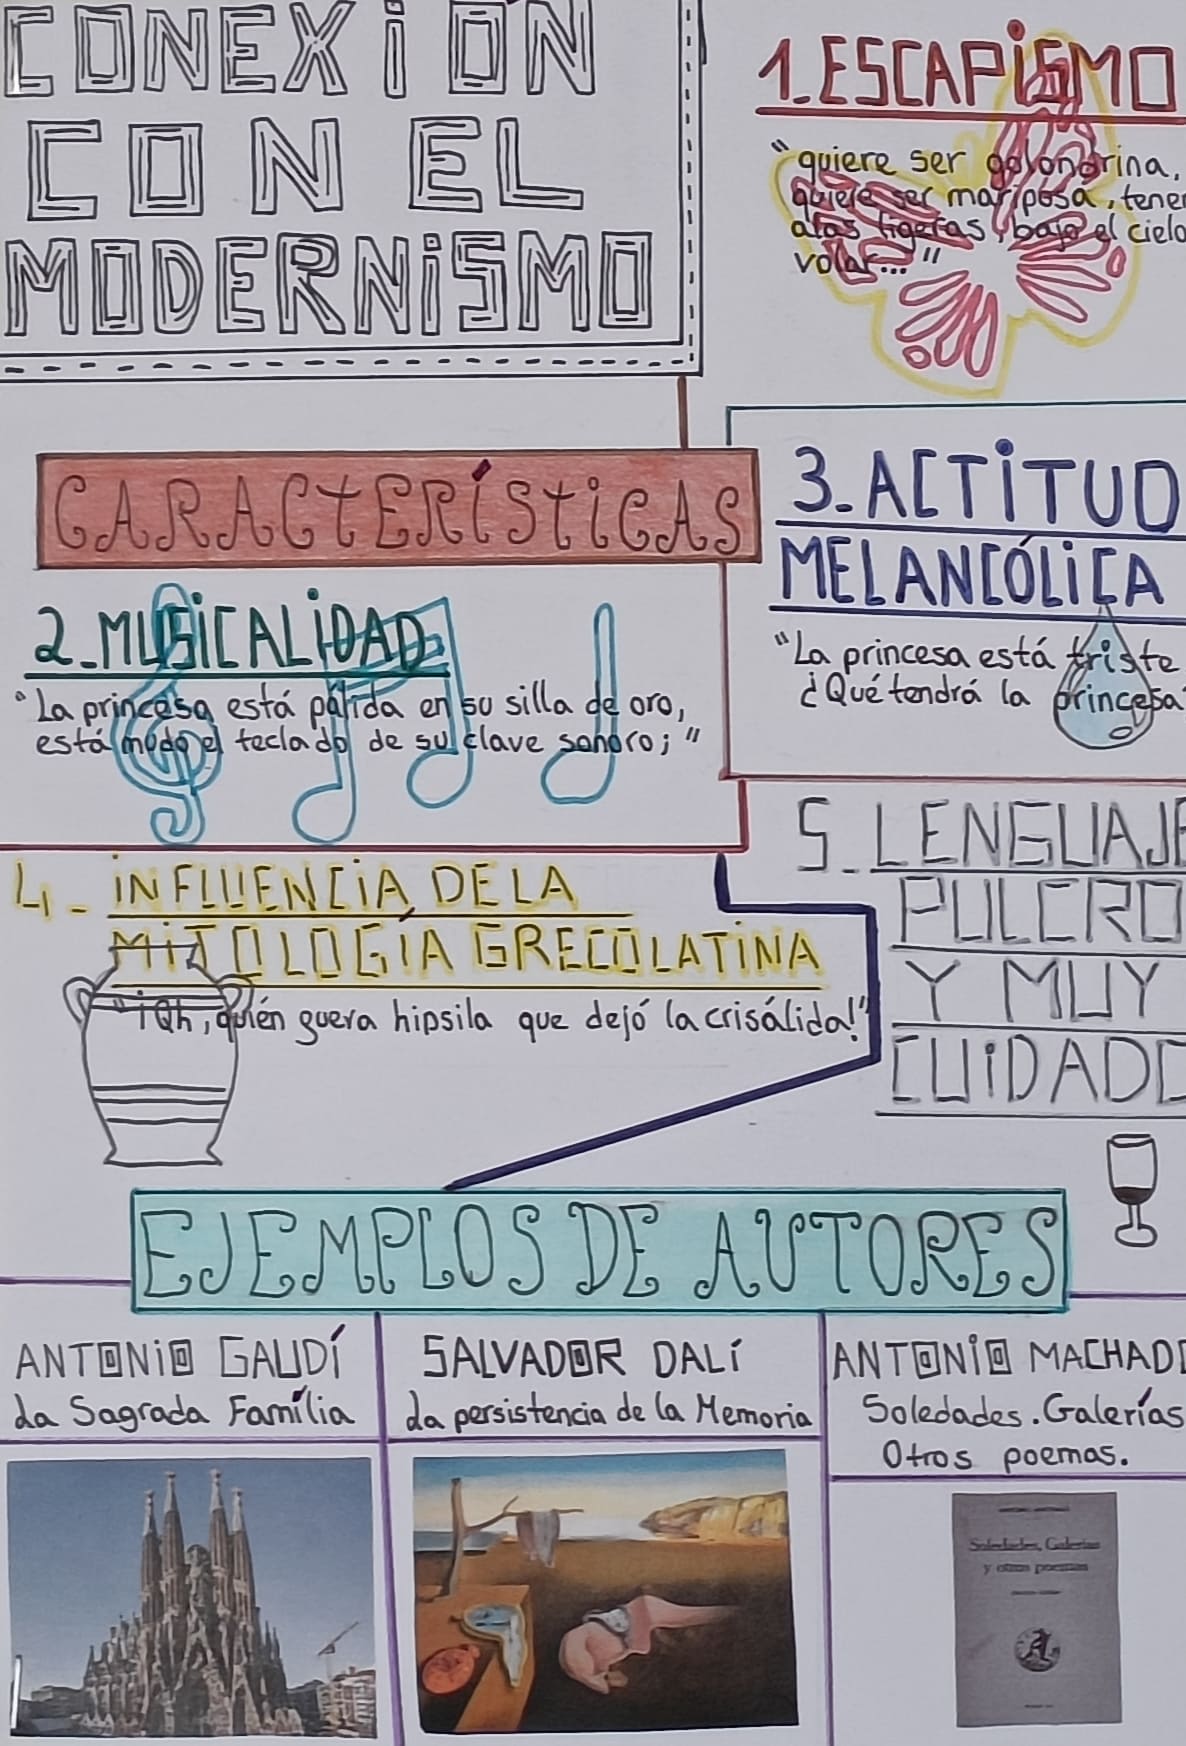 CONEXIÓN
CON EL
MODERNISMO
1. ESCAPISMO
"quiere ser golondrina,
quiere ser mariposa, tener
alas ligeras, bajo el cielo
volar..."
CARACTERÍSTICAS
2. MUSICALIDAD
"La princesa está pálida en su silla de oro,
está mudo el teclado de su clave sonoro;"
3. ACTITUD
MELANCÓLICA
"La princesa está triste
¿Qué tendrá la princesa?
4- INFLUENCIA DE LA
MITOLOGÍA GRECOLATINA
"¡Oh, quién guera hipsila que dejó la crisálida!"
5. LENGUAJE
PULCRO
Y MUY
CUIDADO
EJEMPLOS DE AUTORES
ANTONIO GAUDÍ
La Sagrada Família
SALVADOR DALÍ
La persistencia de la Memoria
ANTONIO MACHADO
Soledades. Galerías
Otros poemas.
Soledades, Galerías
y otros poemas